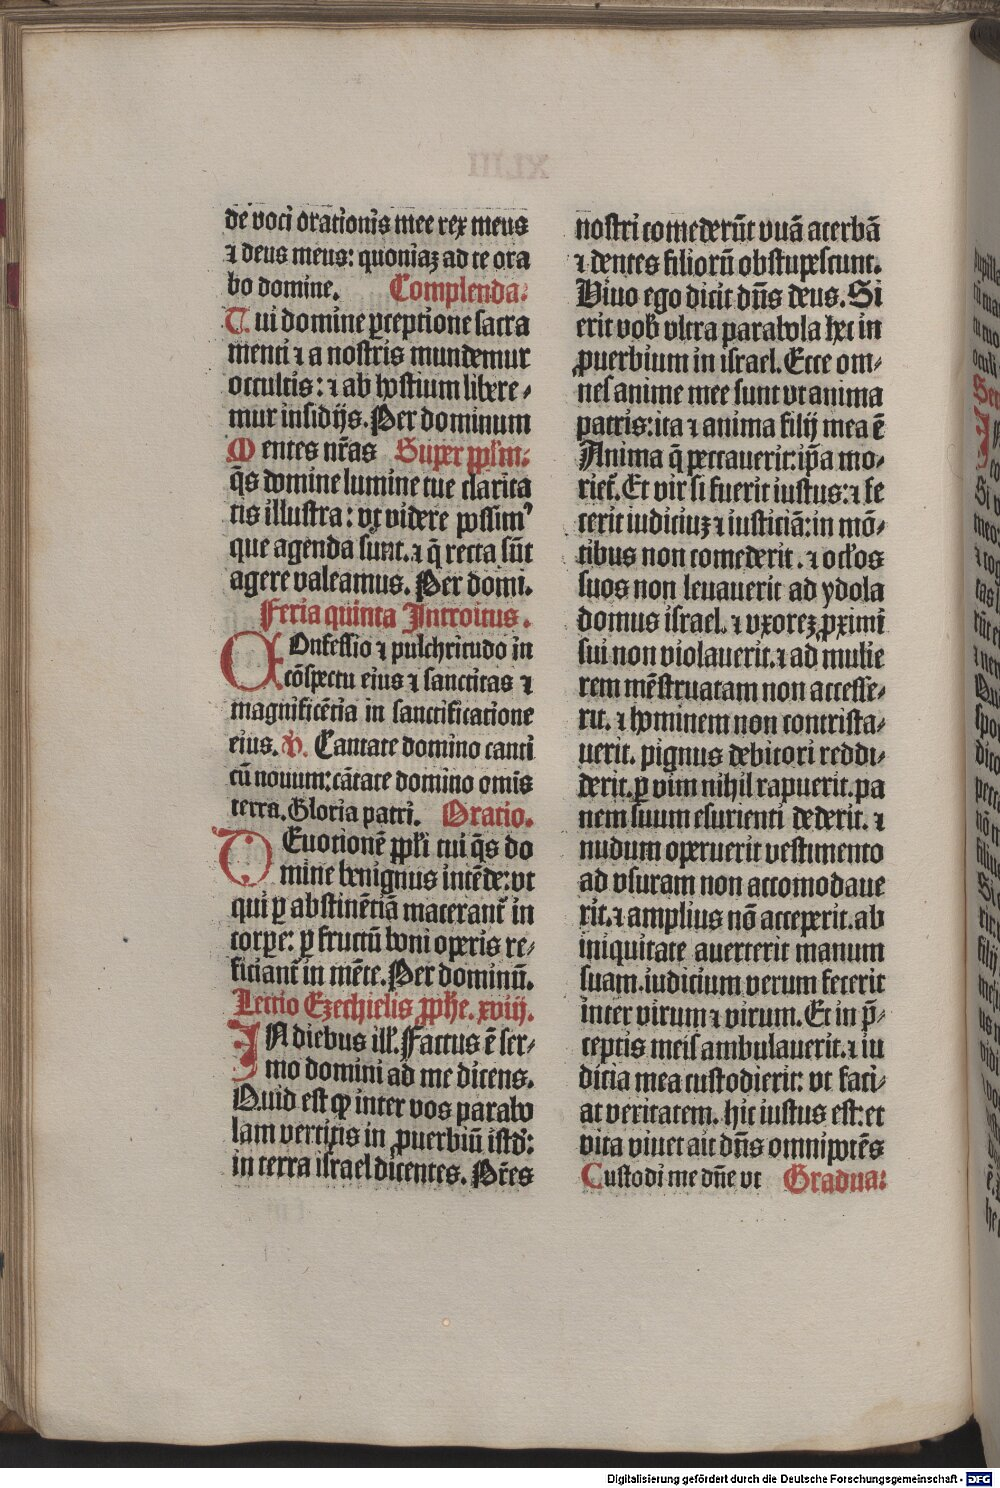 de voci orationis mee rex meus
⁊ deus meus: quoniaꝫ ad te ora
bo domine. Complenda:
Tui domine ꝑceptione sacra
menti ⁊ a nostris mundemur
occultis: ⁊ ab hostium libere-
mur insidijs. Per dominum
Mentes nr̄as Super ppl'm:
q̄s domine lumine tue clarita
tis illustra: vt videre possimꝰ
que agenda sunt. ⁊ q̄ recta sūt
agere valeamus. Per domi.
Feria quinta Introitus.
COnfessio ⁊ pulchritudo in
cōspectu eius ⁊ sanctitas ⁊
magnificētia in sanctificatione
eius. ℣. Cantate domino canti
cū nouum: cātate domino omīs
terra. Gloria patri. Oratio.
DEuotionē ppl'i tui q̄s do
mine benignus intēde: vt
qui ꝑ abstinētiā macerant̄ in
corpe: ꝑ fructū boni operis re-
ficiant̄ in mēte. Per dominū.
Lectio Ezechielis ꝓphe. xviij.
IN diebus ill'. Factus ē ser-
mo domini ad me dicens.
Quid est ꝙ inter vos parabo
lam vertitis in ꝓuerbiū istd':
in terra israel dicentes. Pr̄es
nostri comederūt vuā acerbā
⁊ dentes filiorū obstupescunt.
Viuo ego dicit dn̄s deus. Si
erit vob' vltra parabola hec in
ꝓuerbium in israel. Ecce om-
nes anime mee sunt vt anima
patris: ita ⁊ anima filij mea ē
Anima q̄ peccauerit: ip̄a mo-
riet̄. Et vir si fuerit iustus: ⁊ fe
cerit iudiciuꝫ ⁊ iusticiā: in mō-
tibus non comederit. ⁊ oc'los
suos non leuauerit ad ydola
domus israel. ⁊ vxoreꝫ ꝓximi
sui non violauerit. ⁊ ad mulie
rem mēstruatam non accesse-
rit. ⁊ hominem non contrista-
uerit. pignus debitori reddi-
derit. ꝑ vim nihil rapuerit. pa
nem suum esurienti dederit. ⁊
nudum operuerit vestimento
ad vsuram non accomodaue
rit. ⁊ amplius nō acceperit. ab
iniquitate auerterit manum
suam. iudicium verum fecerit
inter virum ⁊ virum. Et in p̄-
ceptis meis ambulauerit. ⁊ iu
dicia mea custodierit: vt faci-
at veritatem. hic iustus est: et
vita viuet ait dn̄s omnipotēs
Custodi me dn̄e vt Gradua:
Digitalisierung gefördert durch die Deutsche Forschungsgemeinschaft - DFG